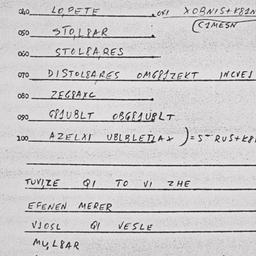 040 LOPETE 041 XOBNIS+K81N
(C1MESN
050 STO,L8AR
060 STOL8ARES
070 DISTOL8ARES OMG81ZEKT INCVEI
080 ZEG8AXC
090 G81UBLT OBG81UBLT
100 AZELXI UBLBLETLAX )=5- RUS+K8
TUVIZE QI TO VI ZHE
EFENEN MERER
VIOSL QI VESLE
MU,L8AR